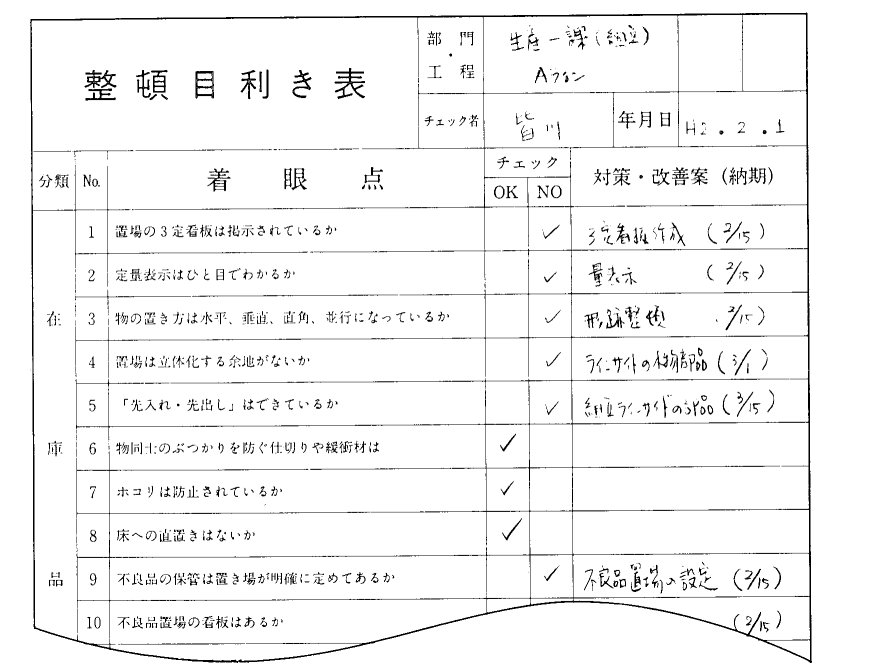 整頓目利き表
部門・工程 生産一課(組立)
Aライン
チェック者 皆川 年月日 H2.2.1
分類 No. 着眼点 チェック 対策・改善案(納期)
OK NO
在庫品
1 置場の3定看板は掲示されているか ✓ 3定看板作成 (2/15)
2 定量表示はひと目でわかるか ✓ 量表示 (2/15)
3 物の置き方は水平、垂直、直角、並行になっているか ✓ 形跡整頓 2/15)
4 置場は立体化する余地がないか ✓ ラインサイトの 部品 (3/1)
5 「先入れ・先出し」はできているか ✓ 組立ラインサイドの部品 (3/15)
6 物同士のぶつかりを防ぐ仕切りや緩衝材は ✓
7 ホコリは防止されているか ✓
8 床への直置きはないか ✓
9 不良品の保管は置き場が明確に定めてあるか ✓ 不良品置場の設定 (2/15)
10 不良品置場の看板はあるか (2/15)